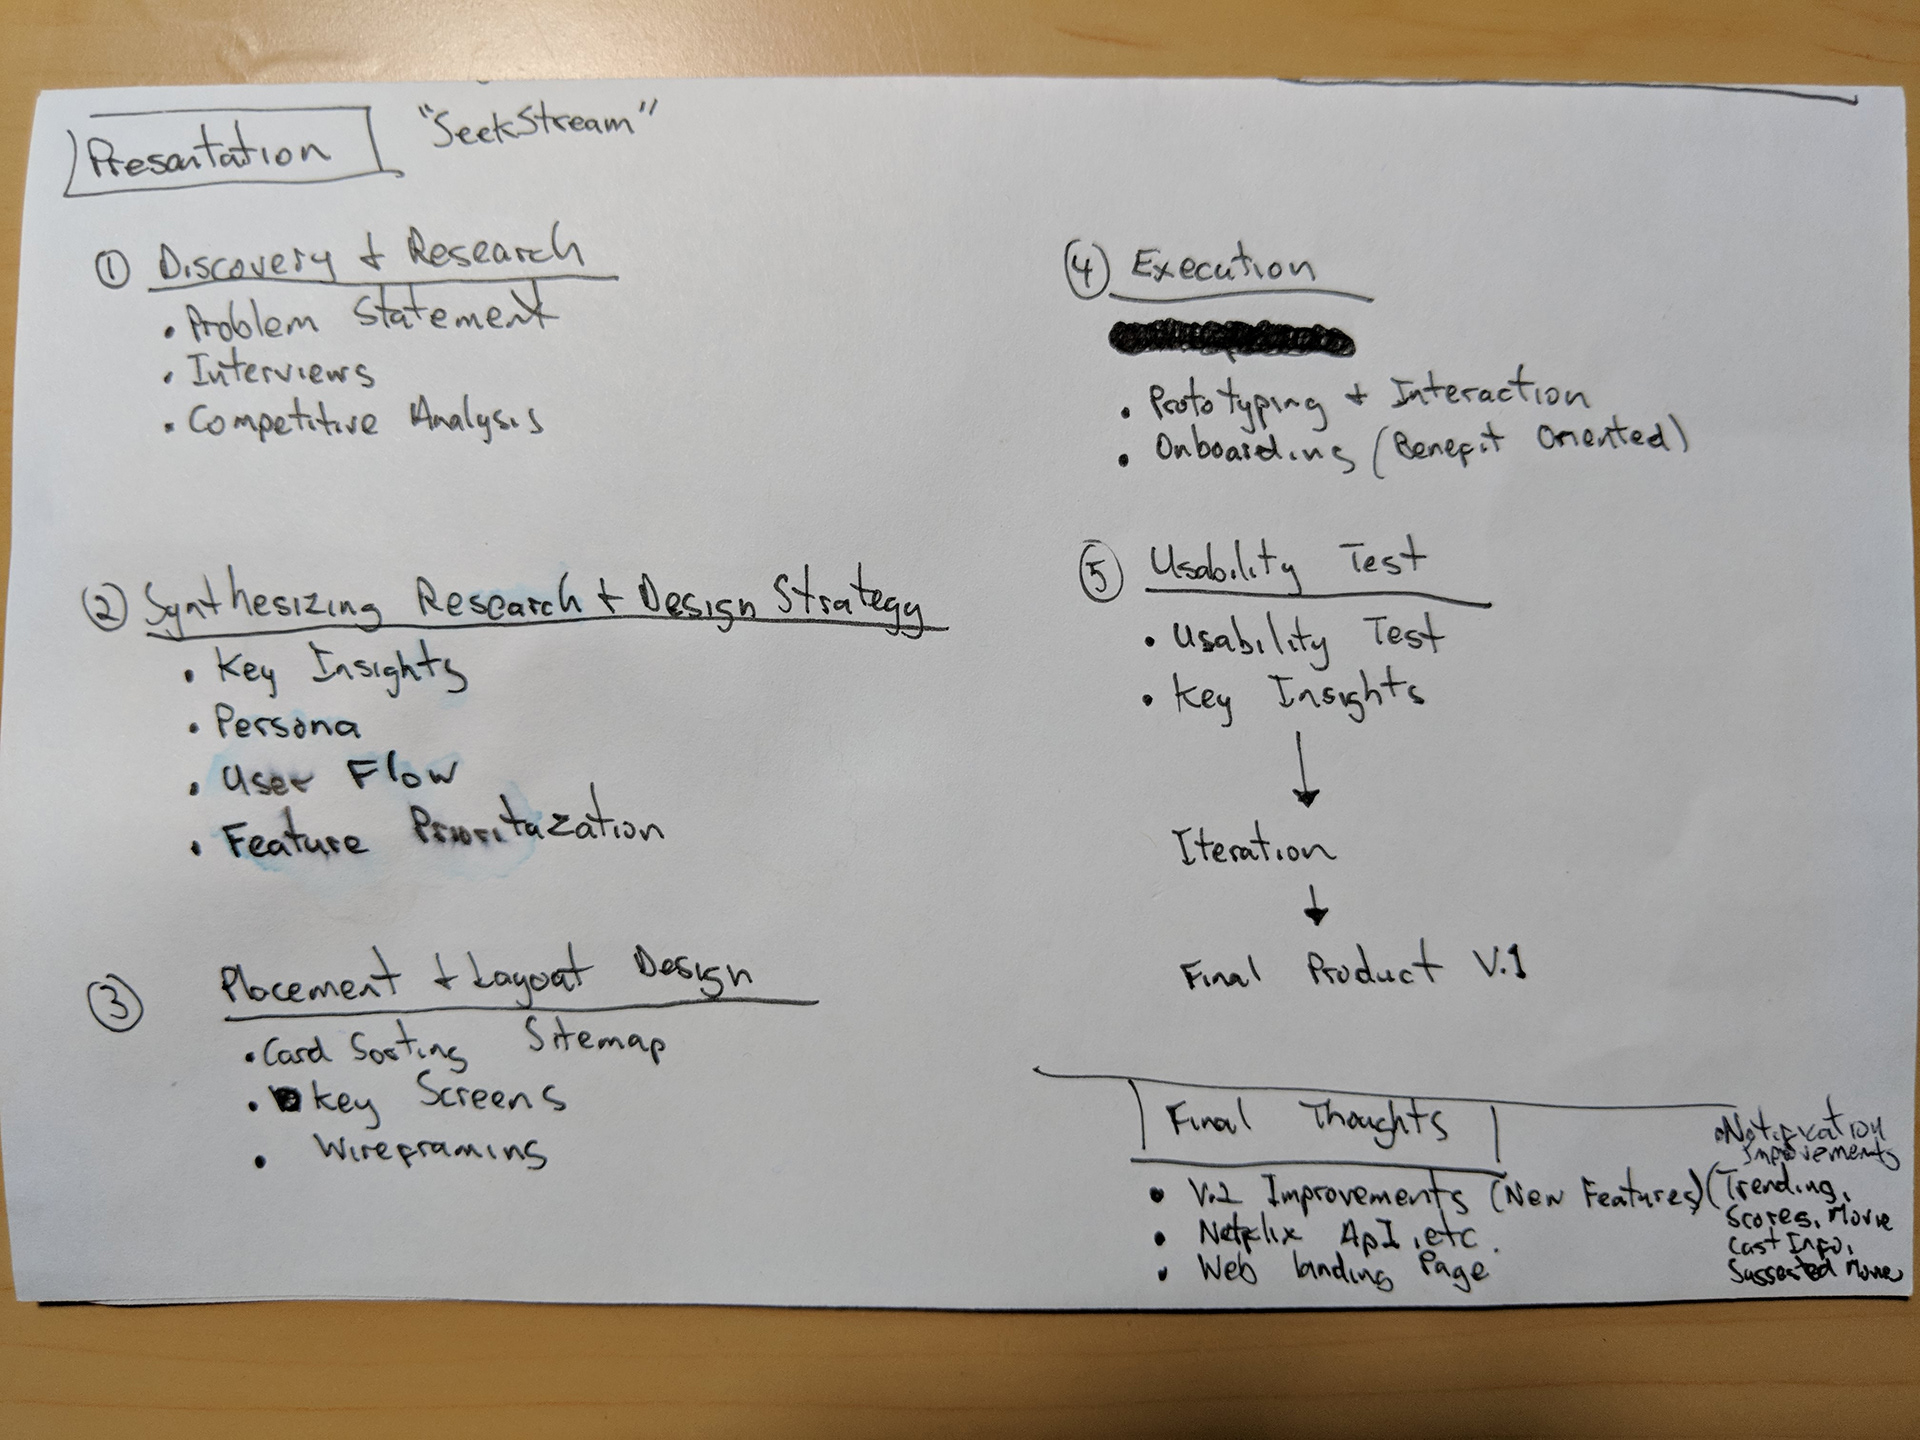 Presentation "SeekStream"
① Discovery + Research
• Problem Statement
• Interviews
• Competitive Analysis
② Synthesizing Research + Design Strategy
• Key Insights
• Persona
• User Flow
• Feature Prioritazation
③ Placement + Layout Design
• Card Sorting Sitemap
• Key Screens
• Wireframing
④ Execution
• Prototyping + Interaction
• Onboarding (Benefit Oriented)
⑤ Usability Test
• Usability Test
• Key Insights
Iteration
Final Product V.1
Final Thoughts
• V.2 Improvements (New Features) (Trending,
Scores, Movie
Cast Info,
Suggested Movie
• Notification
Improvements
• Netflix ApI, etc.
• Web landing Page